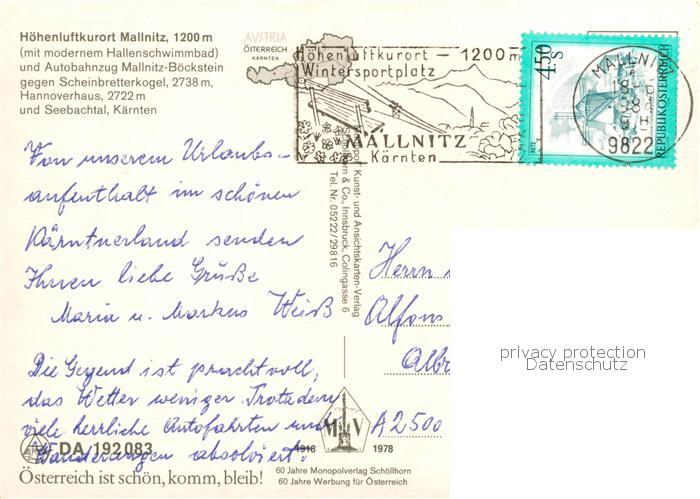 Höhenluftkurort Mallnitz, 1200 m
(mit modernem Hallenschwimmbad)
und Autobahnzug Mallnitz-Böckstein
gegen Scheinbretterkogel, 2738 m,
Hannoverhaus, 2722 m
und Seebachtal, Kärnten
AUSTRIA
ÖSTERREICH
KÄRNTEN
Höhenluftkurort – 1200 m
Wintersportplatz
MALLNITZ
Kärnten
4.50 S
REPUBLIK ÖSTERREICH
MALLNITZ
9822
Von unserem Urlaubs-
aufenthalt im schönen
Kärntnerland senden
Ihnen liebe Grüße
Maria u. Markus Weiß
Die Gegend ist prachtvoll,
das Wetter weniger. Trotzdem
viele herrliche Autofahrten und
Wanderungen absolviert.
Kunst- und Ansichtskarten-Verlag
& Co., Innsbruck, Colingasse 6
Tel. Nr. 05222/29816
Herrn
Alfons
Albr
A 2500
privacy protection
Datenschutz
DA 192 083
Österreich ist schön, komm, bleib!
M V
1918 1978
60 Jahre Monopolverlag Schöllhorn
60 Jahre Werbung für Österreich